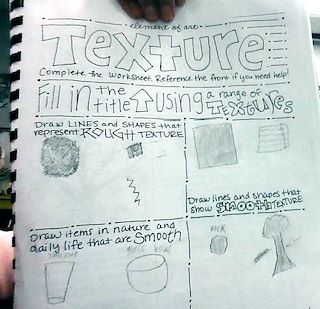 element of art
TEXTURE
Complete the worksheet. Reference the front if you need help!
Fill in the title ↑ using a range of textures
Draw LINES and SHAPES that
represent ROUGH TEXTURE
Draw lines and shapes that
show SMOOTH TEXTURE
Draw items in nature and
daily life that are Smooth
bowl